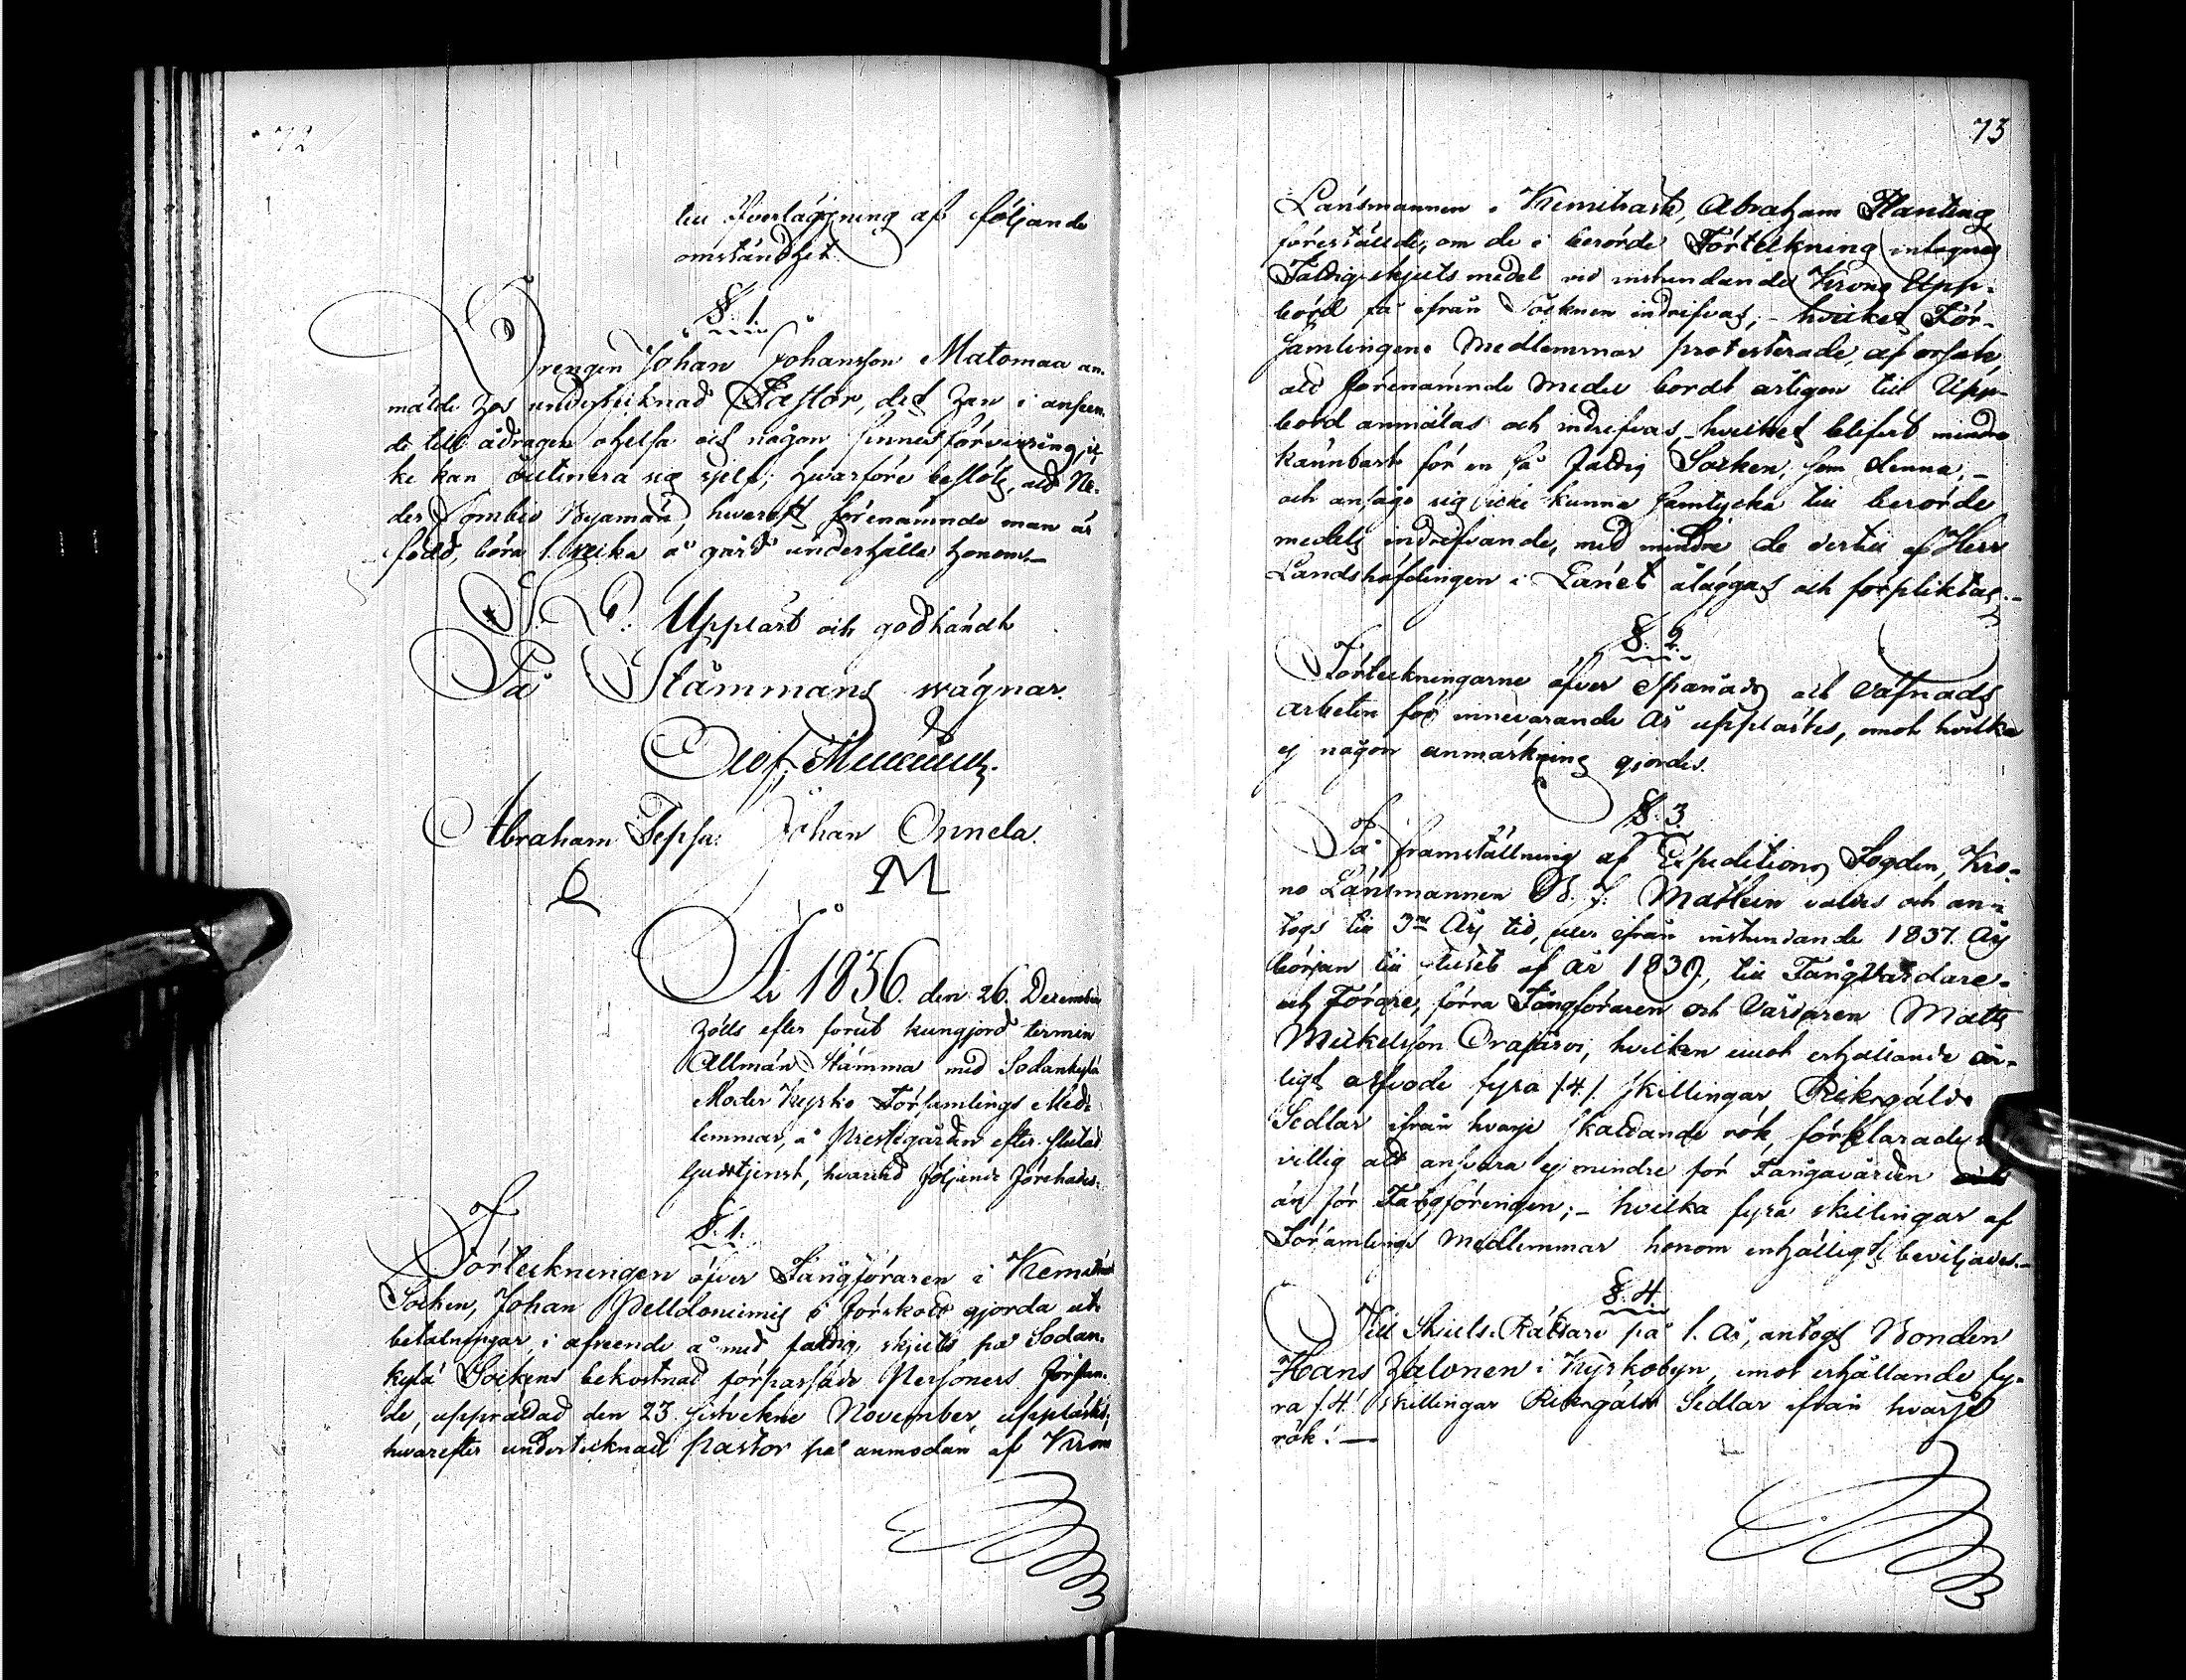 72
till öfverläggning af följande
omständighet.
§. 1.
Drengen Johan Johansson Matomaa an-
mälde hos undertecknad Pastor, det han i anseen-
de till ådragen ohelsa och någon sinnesförvirring, ic-
ke kan sustinera sig sjelf; hvarföre beslöts, att Ne-
der Sombio Byamän, hvaraft förenämnde man är
född, böra 1. vecka å gård underhålla honom.—
Uppläst och godkändt
På Stämmans vägnar.
Olof
Abraham Seppä: Johan Onnela.
M
År 1836. den 26. December
hölls efter förut kungjord termin
Allmän Stämma med Sodankylä
Moder Kyrko Församlings Med-
lemmar, å Prestegården efter slutad
Gudstjenst, hvarvid följande förehades.
§. 1.
Förteckningen öfver Fångföraren i Kemiträsk
Socken, Johan Pelldoniemis i förskott gjorda ut-
betalningar, i afseende å med fattig skjuts på Sodan-
kylä Sockens bekostnad förpassade Personers forslan-
de, upprättad den 23. sistvekne November, upplästes,
hvarefter undertecknad Pastor på anmodan af Krono
73
Länsmannen i Kemiträsk, Abraham Planting
föreställde, om de i berörde Förteckning intagne
Fattig-skjuts medel vid instundande Krono Upp-
börd få ifrån Socknen indrifvas; – hvilket För-
samlingens Medlemmar protesterade, af orsak
att förenämnde medel bordt årligen till Upp-
börd anmälas och indrifvas, hvilket blifvit mindre
kännbart för en så fattig Socken, som denna, –
och ansågo sig icke kunna samtycka till berörde
medels indrifvande, med mindre de dertill af Herr
Landshöfdingen i Länet åläggas och förpliktas.–
§. 2.
Förteckningarne öfver Spånads och Väfnads
arbeten för innevarande År upplästes, emot hvilka
ej någon anmärkning gjordes.
§. 3.
På framställning af Expeditions Fogden, Kro-
no Länsmannen B. J. Matlein valdes och an-
togs till 3ne Års tid, eller ifrån instundande 1837. Års
början till slutet af år 1839, till Fångvårdare
och Förare, förra Fångföraren och Vårdaren Matts
Mickelsson Orajärvi, hvilken emot erhållande år-
ligt arfvode fyra /4./ skillingar Riksgälds
Sedlar ifrån hvarje skattande rök, förklarade sig
villig att ansvara ej mindre för Fångavården
än för Fångförseln; – hvilka fyra skillingar af
Församlings Medlemmar honom enhälligt beviljades.–
§. 4.
Till Skjuts-Rättare på 1. År, antogs Bonden
Hans Halonen i Kyrkobyn, emot erhållande fy-
ra /4/ skillingar Riksgälds Sedlar ifrån hvarje
rök. —